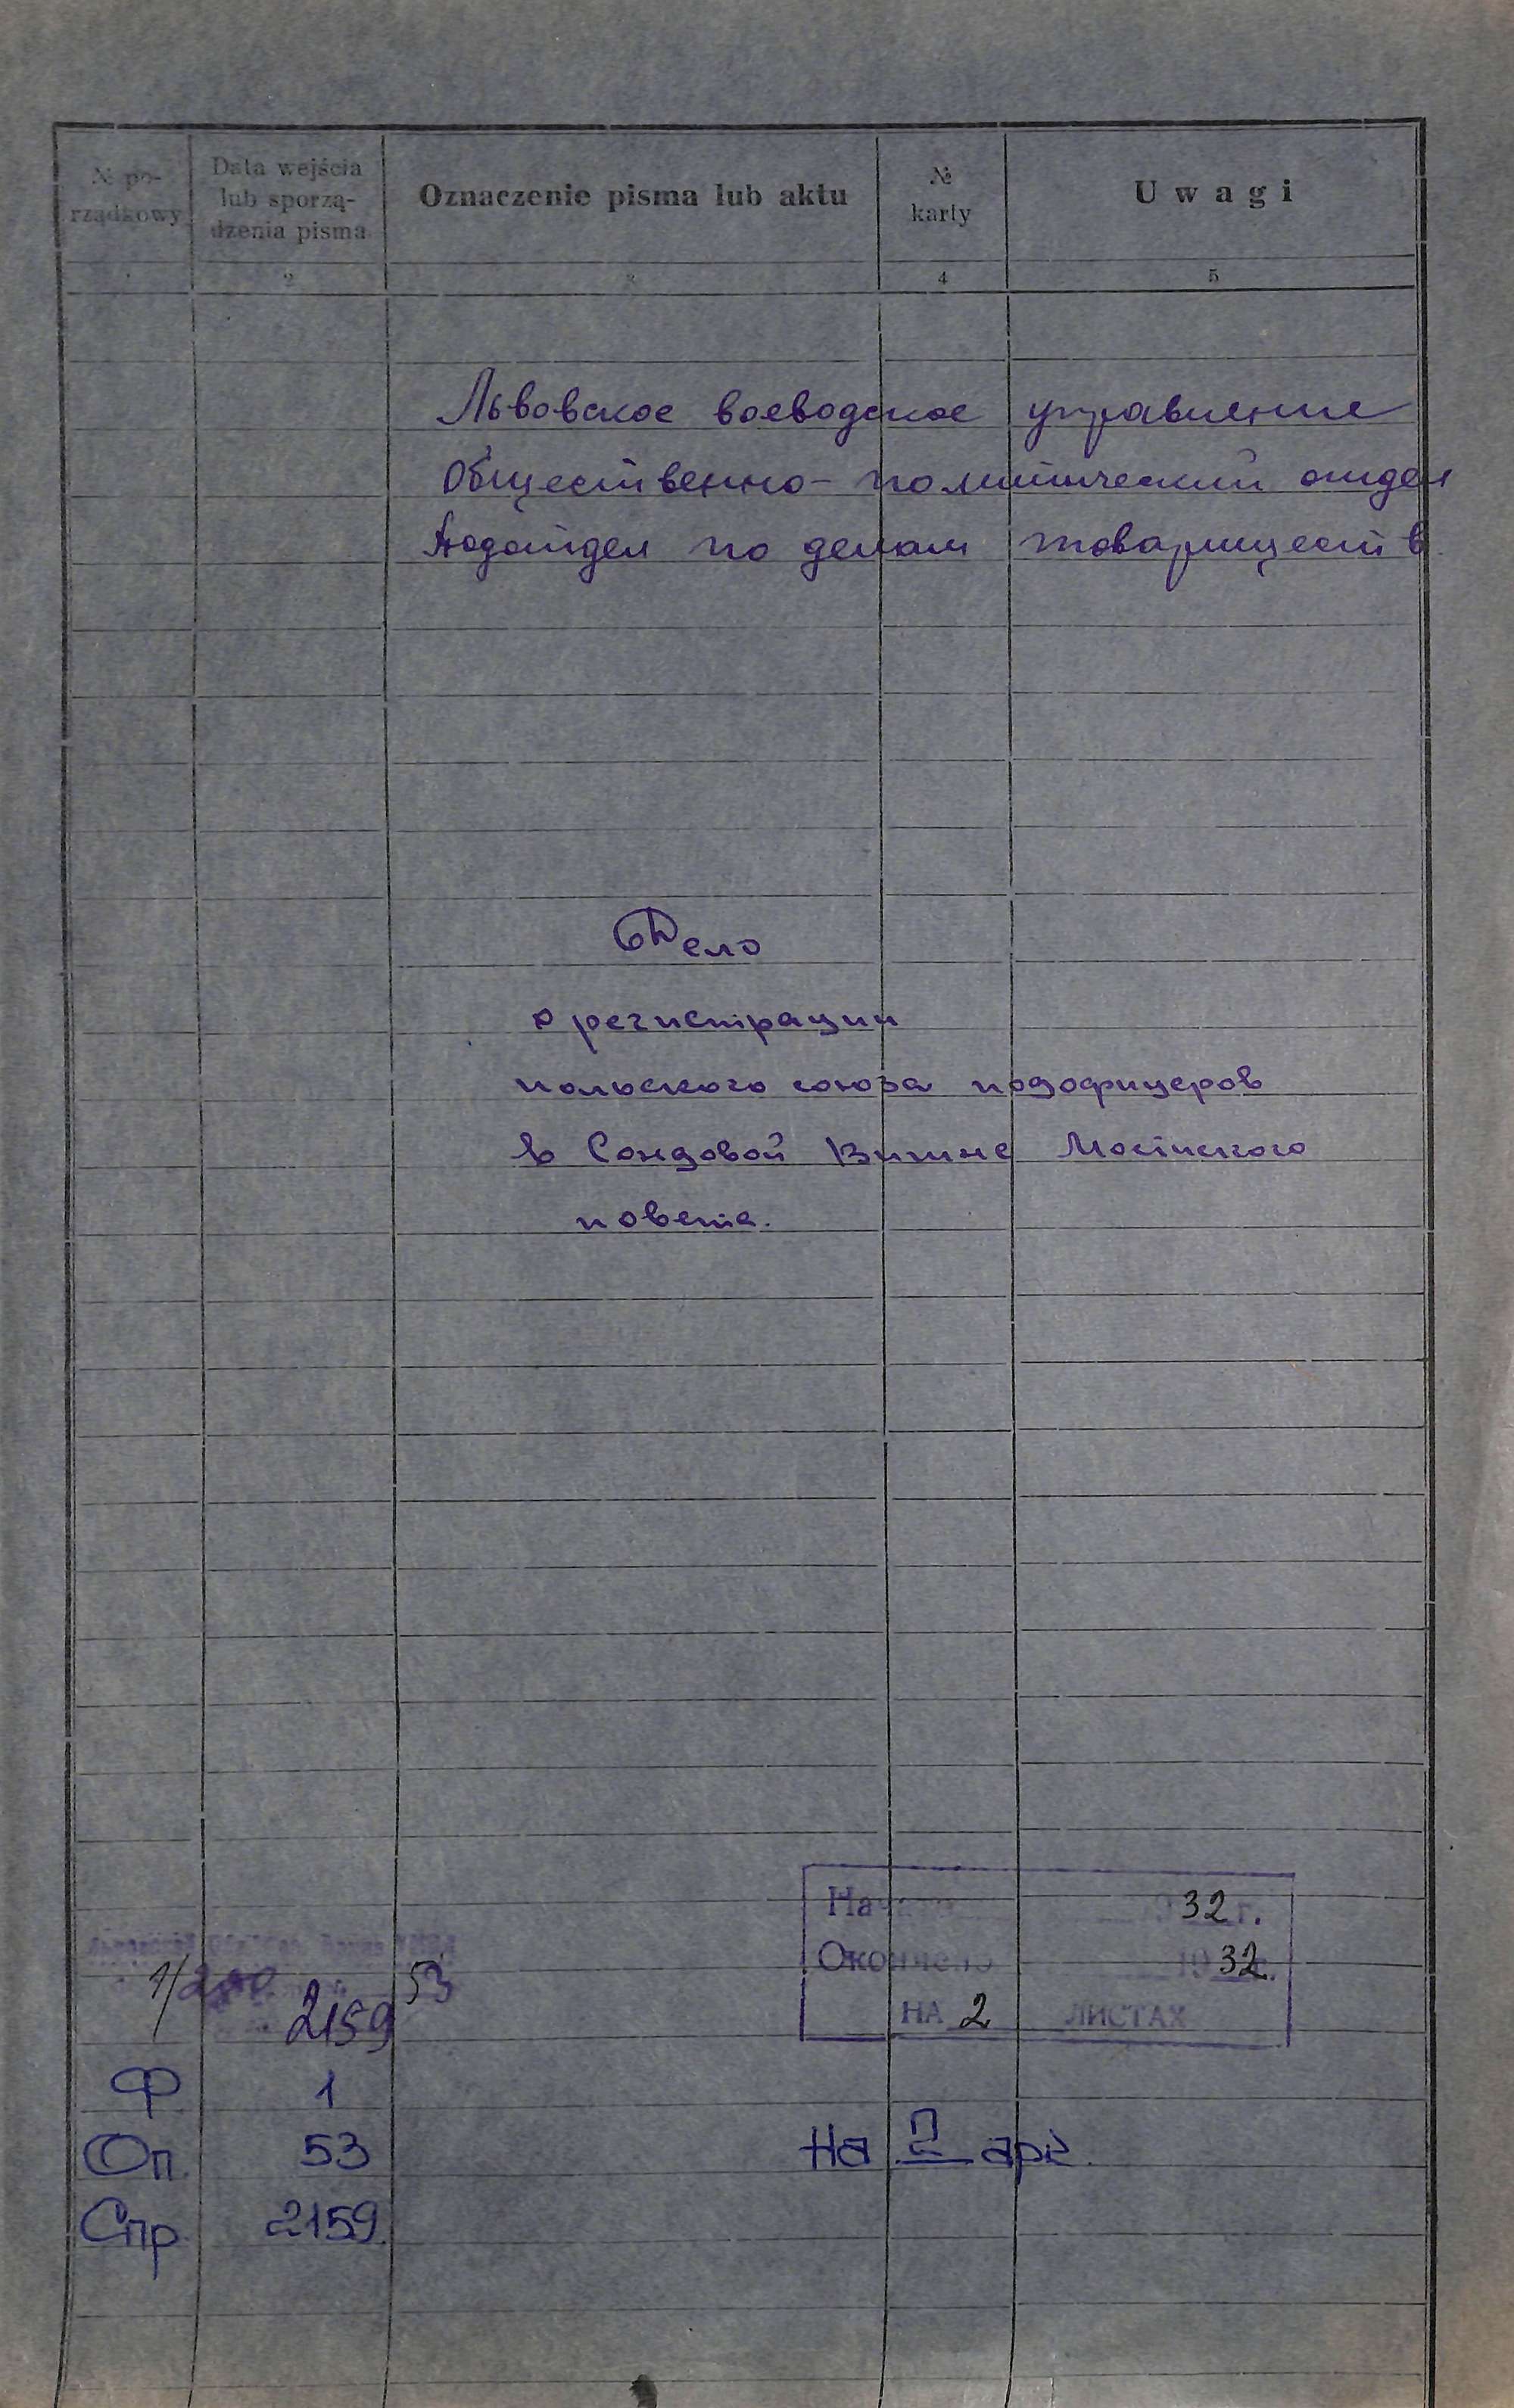 № po-
rządkowy
Data wejścia
lub sporzą-
dzenia pisma
Oznaczenie pisma lub aktu
№
karty
Uwagi
2
3
4
5
Львовское воеводское управление
Общественно-политический отдел
Подотдел по делам товариществ
Дело
о регистрации
польского союза подофицеров
в Сондовой Вишне Мостиского
повета.
Начато 1932 г.
Окончено 1932 г.
НА 2 ЛИСТАХ
1/ 53
2159
Ф. 1
Оп. 53
Спр. 2159.
На 2 арк.